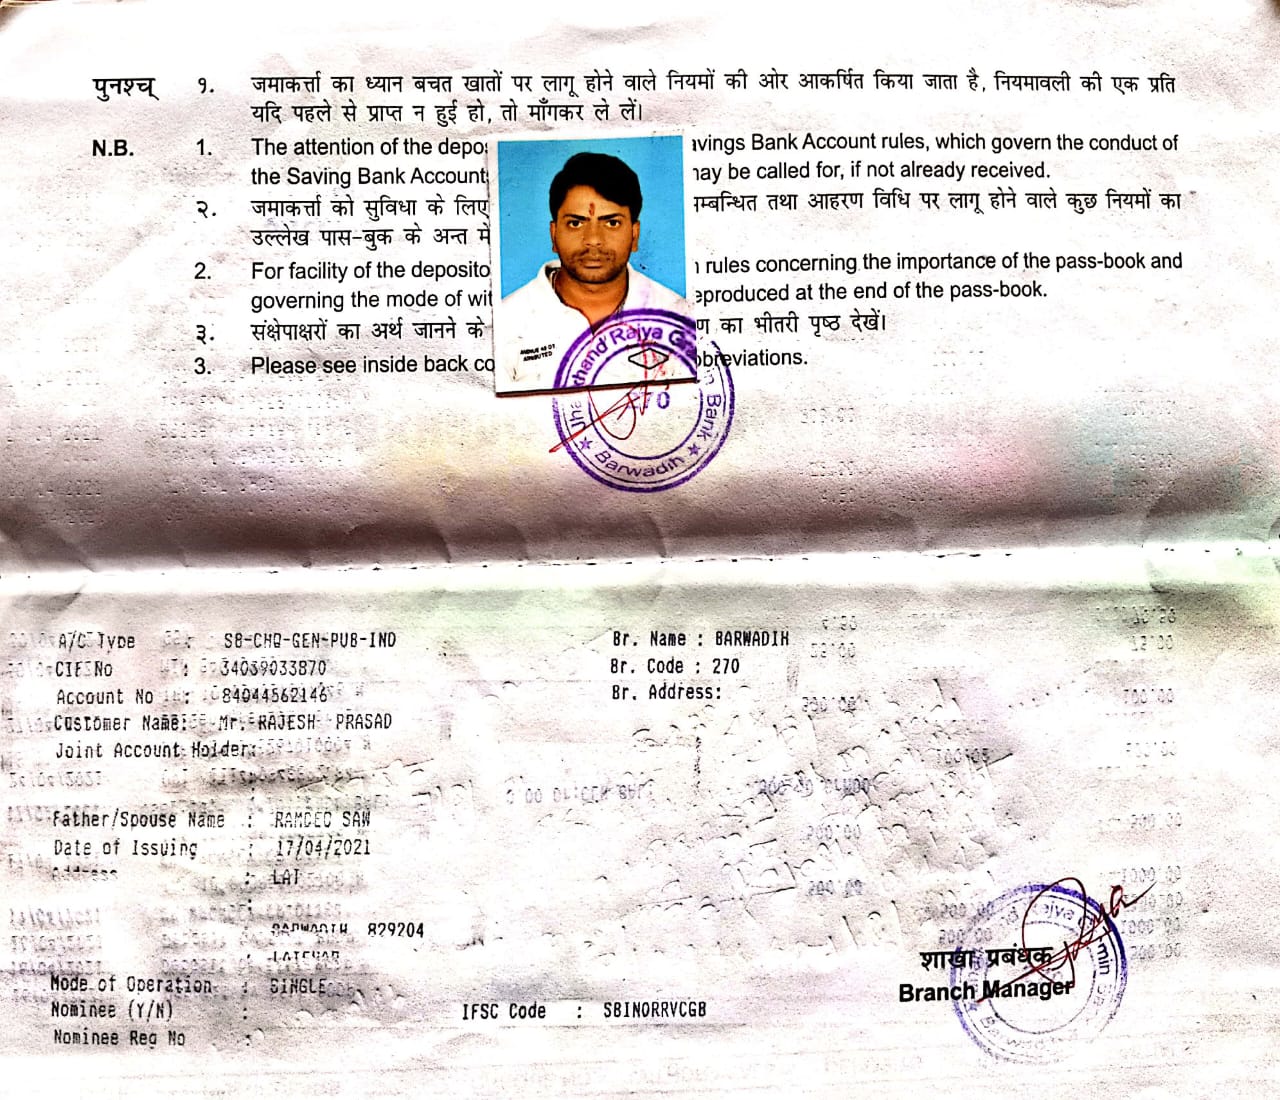 पुनश्च् १. जमाकर्त्ता का ध्यान बचत खातों पर लागू होने वाले नियमों की ओर आकर्षित किया जाता है, नियमावली की एक प्रति
यदि पहले से प्राप्त न हुई हो, तो माँगकर ले लें।
N.B. 1. The attention of the depos avings Bank Account rules, which govern the conduct of
the Saving Bank Account may be called for, if not already received.
२. जमाकर्त्ता को सुविधा के लिए म्बन्धित तथा आहरण विधि पर लागू होने वाले कुछ नियमों का
उल्लेख पास-बुक के अन्त में
2. For facility of the deposito rules concerning the importance of the pass-book and
governing the mode of wit eproduced at the end of the pass-book.
३. संक्षेपाक्षरों का अर्थ जानने के ण का भीतरी पृष्ठ देखें।
3. Please see inside back co bbreviations.
Jharkhand Rajya Gramin Bank
270
Barwadih
A/C Type : SB-CHQ-GEN-PUB-IND Br. Name : BARWADIH
CIF No : 34039033870 Br. Code : 270
Account No : 84044562146 Br. Address:
Customer Name: Mr. RAJESH PRASAD
Joint Account Holder:
Father/Spouse Name : RAMDEO SAW
Date of Issuing : 17/04/2021
Address : LAT
BARWADIH 829204
LATEHAR
Mode of Operation : SINGLE
Nominee (Y/N) : IFSC Code : SBIN0RRVCGB
Nominee Reg No :
शाखा प्रबंधक
Branch Manager